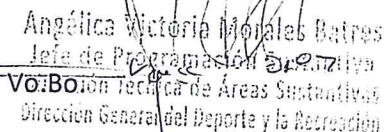 Angélica Victoria Morales Batres
Jefe de Programación Sustantiva
Vo.Bo. Técnica de Áreas Sustantivas
Dirección General del Deporte y la Recreación